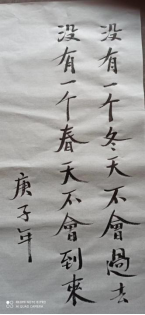 没有一个冬天不會過去
没有一个春天不會到來
庚子年